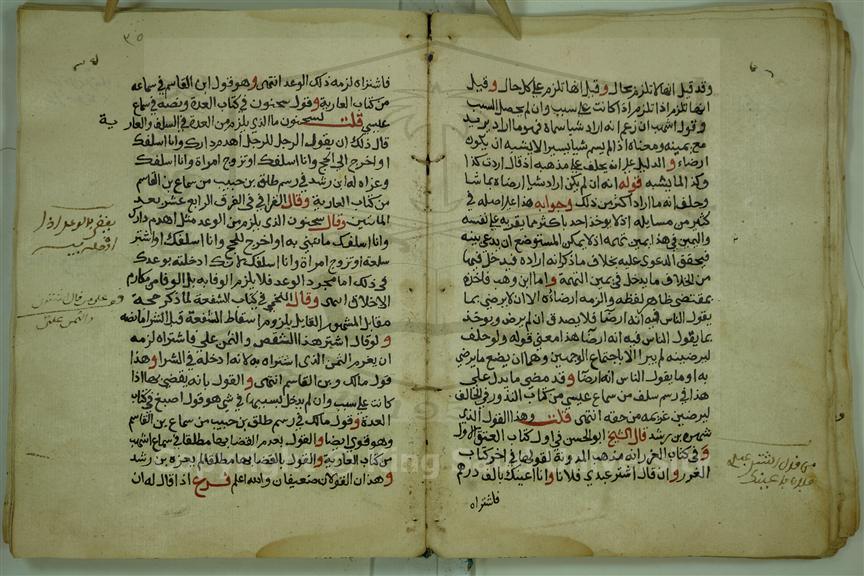 وقد قيل انها لا تلزم بحال وقيل انها تلزم على كل حال وقيل
انها تلزم اذا كانت على سبب وان لم يحصل السبب
وقول اشهب ان زعم انه اراد شيا سماه في يوما او يريد
مع يمينه ومعناه اذا لم يسم شيا يسيرا لا يشبه ان يكون
ارضاء والدليل على انه يحلف على مذهبه اذ قال اردت كذا
وكذا لما يشبه قوله انه ان لم يكن اراد شيا ارضاه بما شا
وحلف انه ما اراد اكثر من ذلك وجوابه هذا على اصله في
كثير من مسايله اذ لا يوخذ احد باكثر مما يقر به على نفسه
واليمين في هذا يمين تهمة اذ لا يمكن المستوضع ان يدعي بينة
فيحقق الدعوى عليه بخلاف ما ذكر انه اراده فيدخل فيها
من الخلاف ما يدخل في يمين التهمة واما ابن وهب فاخذه
بمقتضى ظاهر لفظه والزمه ارضاؤه الا ان لا يرضى بما
يقول الناس فيه انه ارضا فلا يصدق ان لم يرض ويوخذ
بما يقول الناس فيه انه ارضا هذا معنى قوله ولو حلف
ليرضينه لم يبرا الا باجتماع الوجهين وهما ان يضع ما يرضى
به او ما يقول الناس انه ارضا وقد مضى ما يدل على
هذا في رسم سلف من سماع عيسى من كتاب النذور في الحالف
ليرضين غريمه من حقه انتهى قلت وهذا القول الذي
شهره بن رشد قال الشيخ ابو الحسن في اول كتاب العتق الاول
وفي كتاب الغرر انه مذهب المدونة لقوله في اخر كتاب
الغرر وان قال اشتر عبدي فلانا وانا اعينك بالف درهم
فاشتراه
٣٥
فاشتراه لزمه ذلك الوعد انتهى وهو قول ابن القاسم في سماعه
من كتاب العارية وقول سحنون في كتاب العدة ونصه في سماع
عيسى قلت لسحنون ما الذي يلزم من العدة في السلف والعارية
قال ذلك ان يقول الرجل للرجل اهدم دارك وانا اسلفك
او اخرج الى الحج وانا اسلفك او تزوج امراة وانا اسلفك
وعزاه له ابن رشد في رسم طلق بن حبيب من سماع ابن القاسم
من كتاب العارية وقال القرافي في الفرق الرابع عشر بعد
المائتين وقال سحنون الذي يلزم من الوعد مثل اهدم دارك
وانا اسلفك ما تبني به او اخرج للحج وانا اسلفك او اشتر
سلعة او تزوج امراة وانا اسلفك لانك ادخلته بوعدك
في ذلك اما مجرد الوعد فلا يلزم الوفا به بل الوفا من مكارم
الاخلاق انتهى وقال اللخمي في كتاب الشفعة لما ذكر حجة
مقابل المشهور القايل بلزوم اسقاط الشفعة قبل الشرا ما نصه
ولو قال اشتر هذا الشقص والثمن علي فاشتراه لزمه
ان يغرم الثمن الذي اشتراه به لانه ادخله في الشرا وهذا
قول مالك وبن القاسم انتهى والقول بانه يقضى بها اذا
كانت على سبب وان لم يدخل بسببها في شي هو قول اصبغ في كتاب
العدة وقول مالك في رسم طلق بن حبيب من سماع ابن القاسم
وهو قوي ايضا والقول بعدم القضا بها مطلقا في سماع اشهب
من كتاب العارية والقول بالقضا بها مطلقا لم يعزه بن رشد
وهذان القولان ضعيفان والله اعلم فرع اذا قال له ان